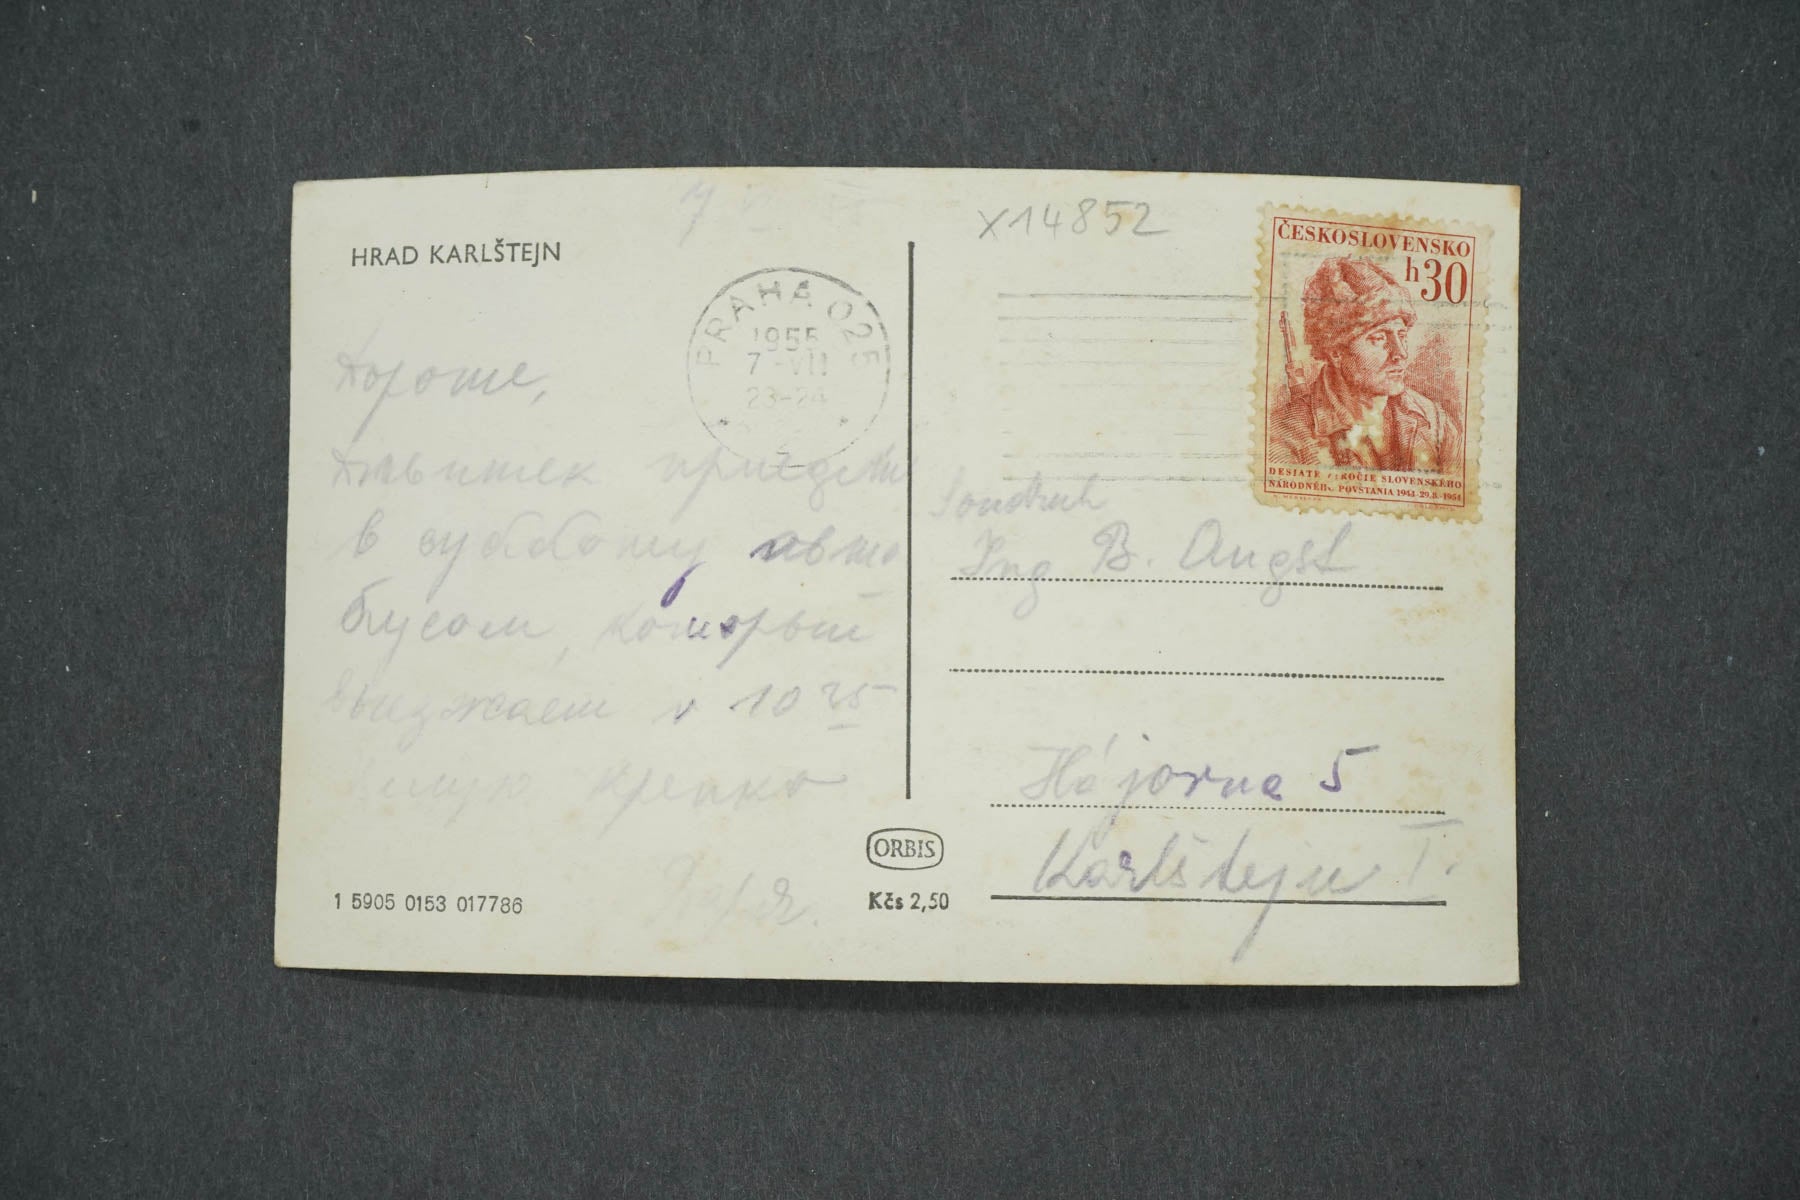 HRAD KARLŠTEJN
X14852
PRAHA 025
1955
7 -VII
23-24
2
ČESKOSLOVENSKO
h30
DESIATE VÝROČIE SLOVENSKÉHO
NÁRODNÉHO POVSTANIA 1944-29.8.-1954
Дорогие,
приедет
в субботу авто
бусом, который
выезжает в 10 25
крепко
Soudruh
Ing B. Augst
Hájovna 5
Karlštejn I.
ORBIS
Kčs 2,50
1 5905 0153 017786